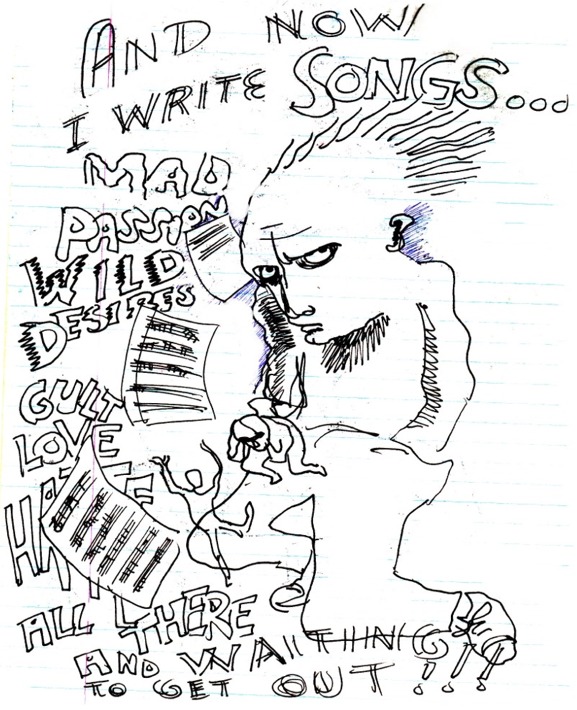 AND NOW
I WRITE SONGS...
MAD
PASSION
WILD
DESIRES
GULT
LOVE
HATE
ALL THERE
AND WAITING
TO GET OUT!!!